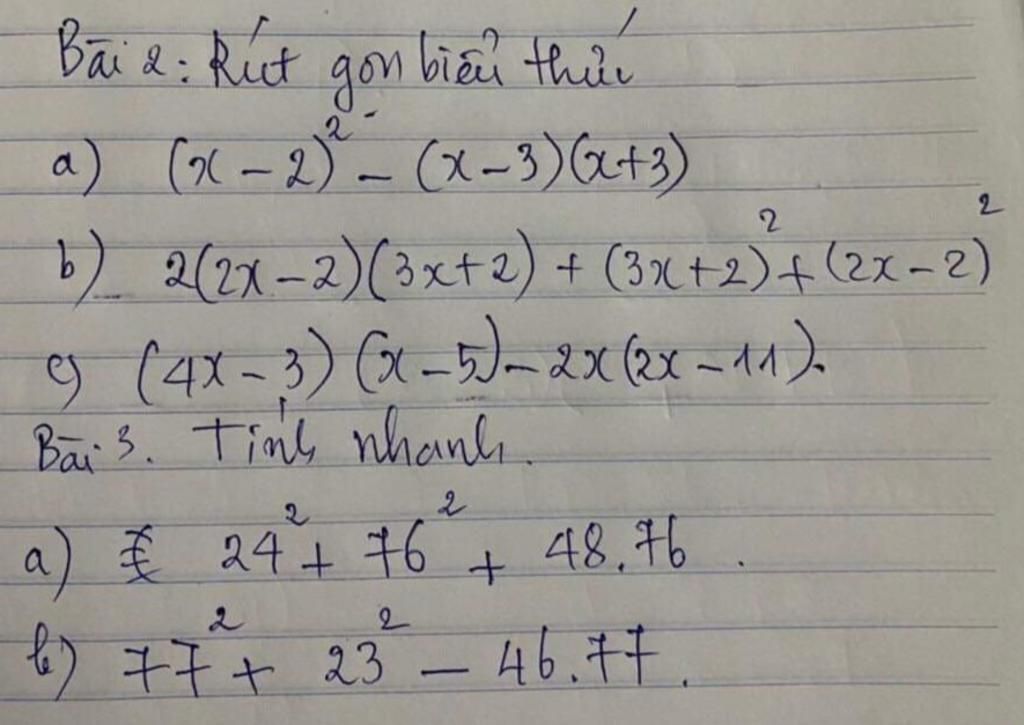 Bài 2: Rút gọn biểu thức
a) (x - 2)² - (x - 3)(x + 3)
b) 2(2x - 2)(3x + 2) + (3x + 2)² + (2x - 2)²
c) (4x - 3)(x - 5) - 2x(2x - 11).
Bài 3. Tính nhanh.
a) 24² + 76² + 48.76.
b) 77² + 23² - 46.77.